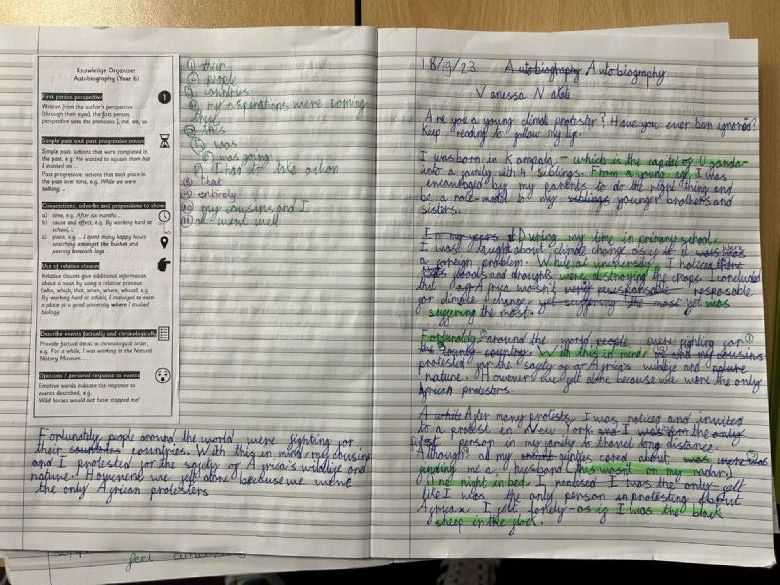 Knowledge Organiser
Autobiography (Year 6)
First person perspective
Written from the author's perspective
(through their eyes), the first person
perspective uses the pronouns I, me, we, us.
Simple past and past progressive tenses
Simple past: actions that were completed in
the past, e.g. He wanted to squash them but
I insisted on...
Past progressive: actions that took place in
the past over time, e.g. While we were
talking, ...
Conjunctions, adverbs and prepositions to show:
a) time, e.g. After six months...
b) cause and effect, e.g. By working hard at
school,...
c) place, e.g. ... I spent many happy hours
searching amongst the bushes and
peering beneath logs...
Use of relative clauses
Relative clauses give additional information
about a noun by using a relative pronoun
(who, which, that, when, where, whose), e.g.
By working hard at school, I managed to earn
a place at a good university where I studied
biology.
Describe events factually and chronologically
Provide factual detail in chronological order,
e.g. For a while, I was working in the Natural
History Museum...
Opinions / personal response to events
Emotive words indicate the response to
events described, e.g.
Wild horses would not have stopped me!
their
people
countries
my aspirations were coming
true
this
was
was going
I had to take action
that
entirely
my cousins and I
all went well
Fortunately, people around the world were fighting for
their countries countries. With this in mind, my cousins
and I protested for the safety of Africa's wildlife and
nature. However, we felt alone because we were
the only African protesters
18/9/23 Autobiography Autobiography
Vanessa Nakate
Are you a young climate protester? Have you ever been ignored?
Keep reading to follow my life!
I was born in Kampala - which is the capital of Uganda -
into a family with 4 siblings. From a young age, I was
encouraged by my parents to do the right thing and
be a role-model to my siblings younger brothers and
sisters.
During my time in primary school,
I was taught about climate change as if it was
a foreign problem. While at university, I noticed
floods and droughts were destroying the crops. I concluded
that Africa wasn't responsable
for climate change, yet suffering the most yet was
suffering the most.
Fortunately around the world people were fighting for
the country. With this in mind, me and my cousins
protested for the safety of Africa's wildlife and nature
nature. However, we felt alone because we were the only
African protesters.
A while After many protests, I was noticed and invited
to a protest in New York and I was the only
first person in my family to travel long distance.
Although all my aunties cared about was
finding me a husband, this wasn't on my radar.
One night in bed, I realised I was the only felt
like I was the only person protesting about
Africa. I felt lonely - as if I was the black
sheep in the flock.